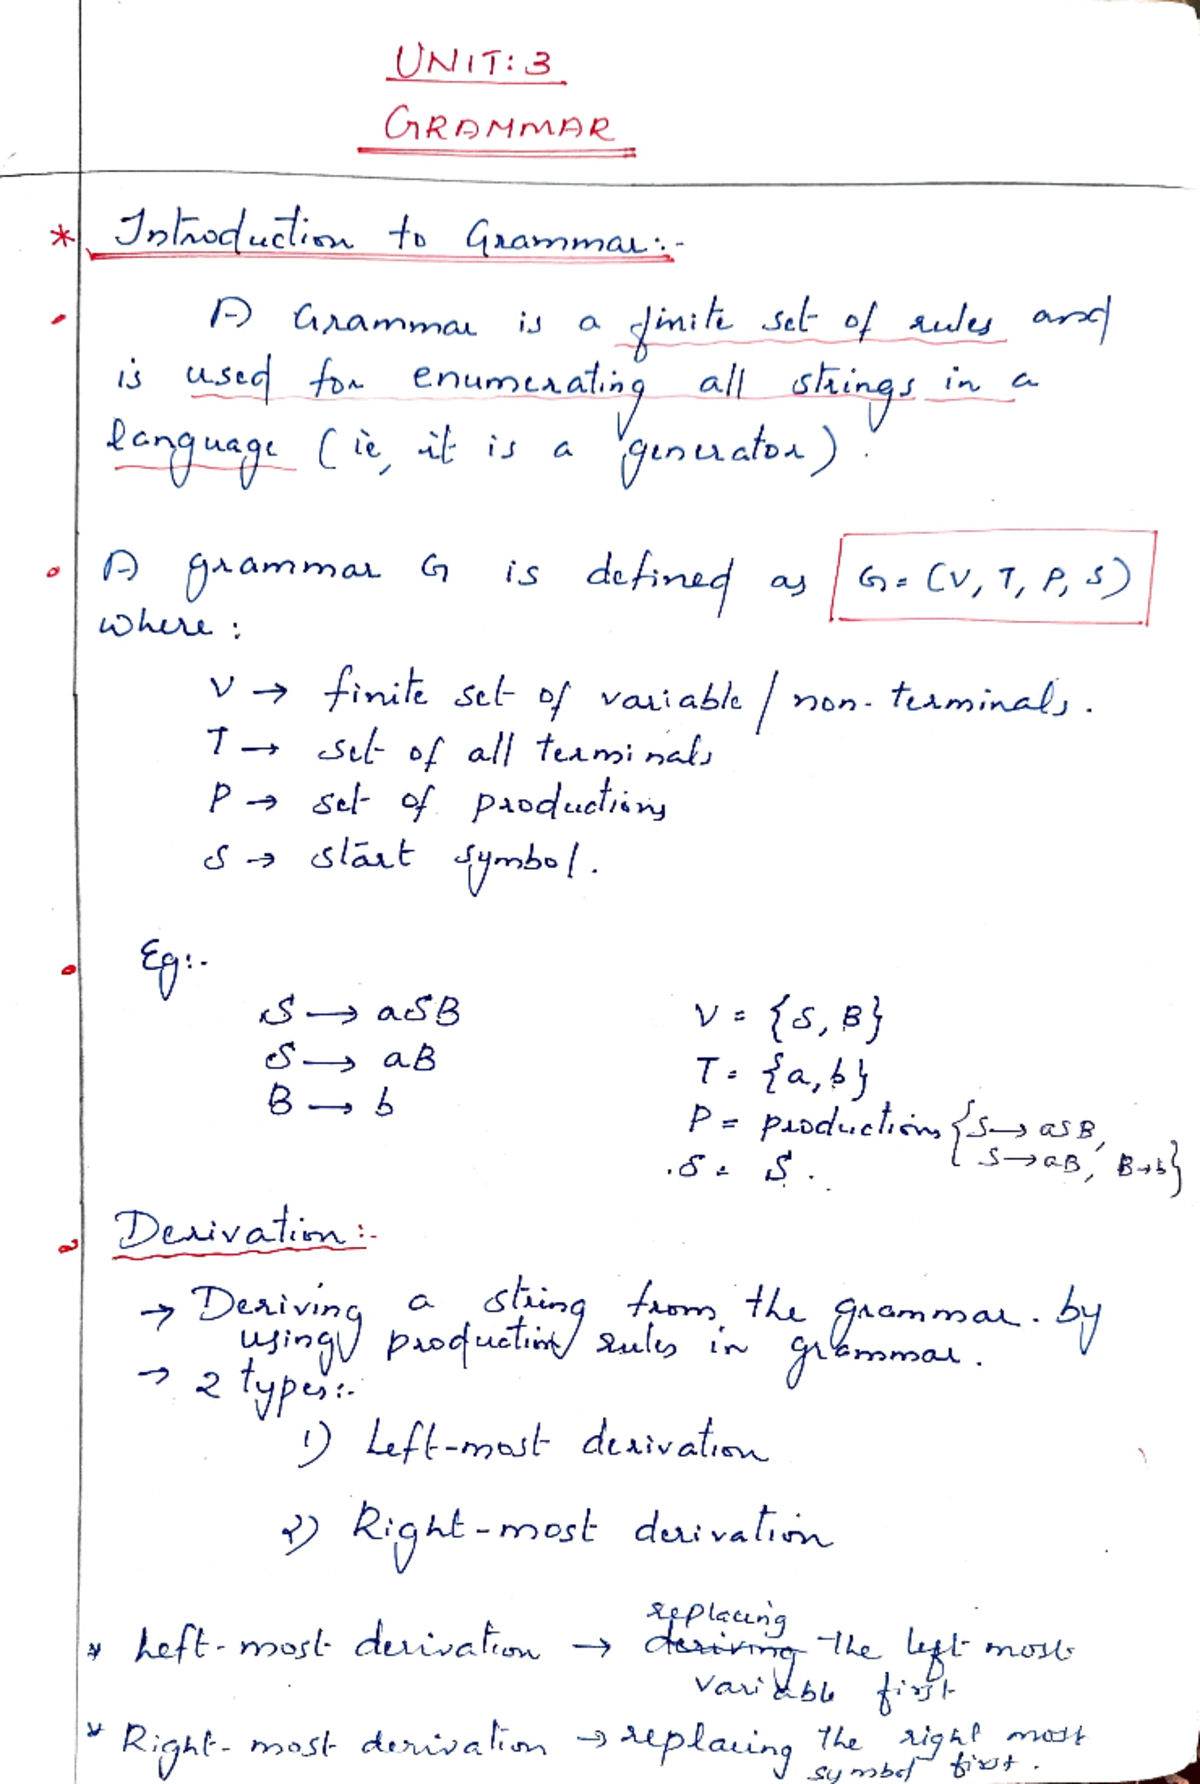 UNIT: 3
GRAMMAR
* Introduction to Grammar:-
A Grammar is a finite set of rules and
is used for enumerating all strings in a
language (ie, it is a generator).
A grammar G is defined as G = (V, T, P, S)
where:
V → finite set of variable / non-terminals.
T → set of all terminals
P → set of productions
S → start symbol.
Eg:-
S → aSB V = {S, B}
S → aB T = {a, b}
B → b P = productions {S → aSB,
S → aB, B → b}
S = S.
Derivation:-
→ Deriving a string from the grammar. by
using production rules in grammar.
→ 2 types:-
1) Left-most derivation
2) Right-most derivation
replacing
* Left-most derivation → deriving the left most
variable first
* Right-most derivation → replacing the right most
symbol first.